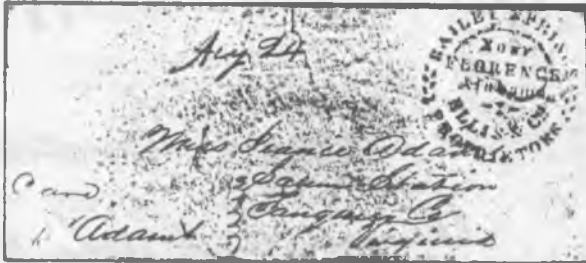 Aug 24
BAILEY SPRINGS
Near
FLORENCE
Alabama
ELLIS & CO
PROPRIETORS
Miss Adams
Station
Fauquier Co
Virginia
Adams